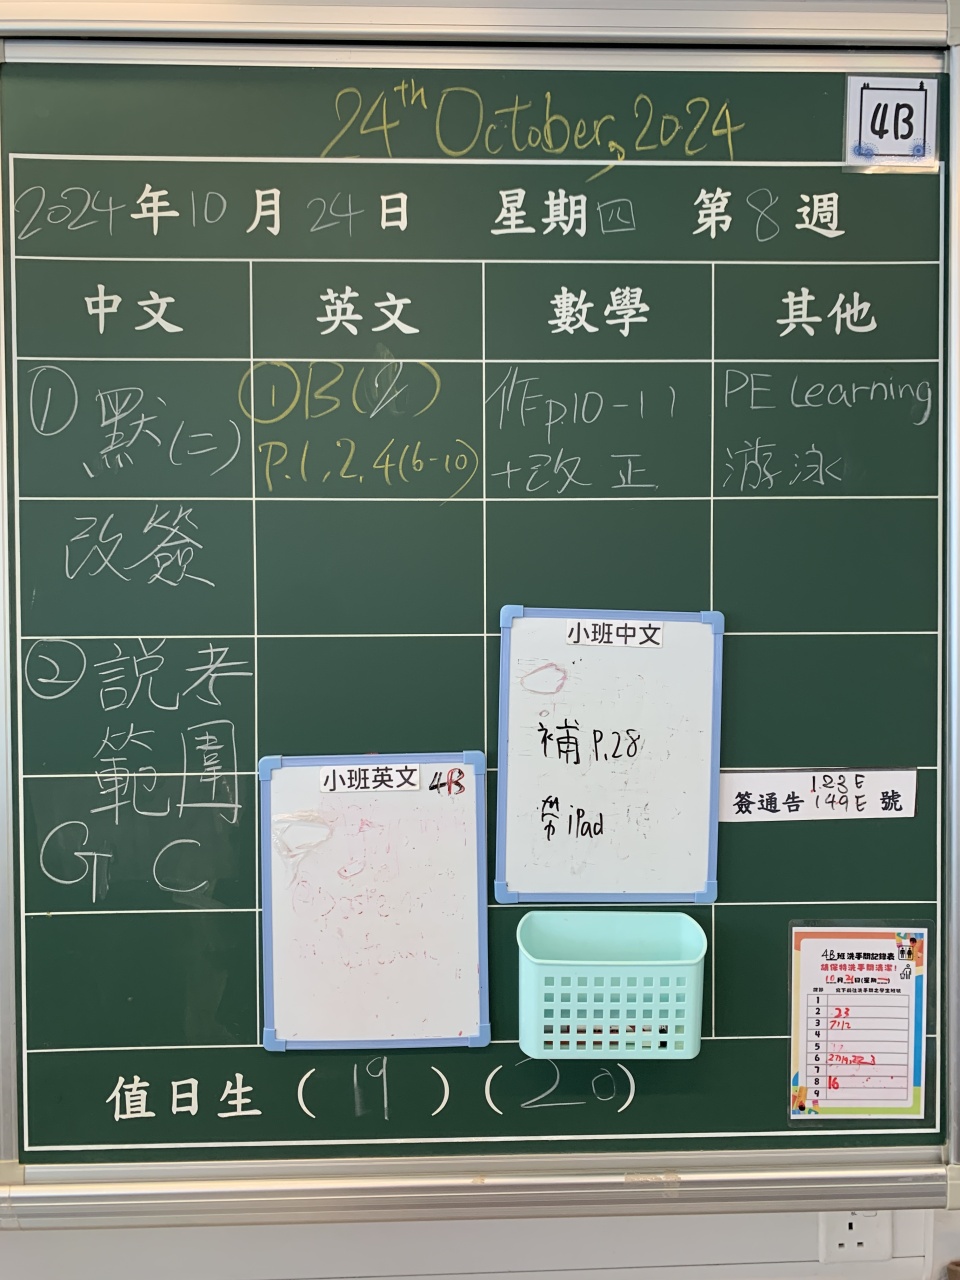 24th October, 2024
4B
2024年10月24日 星期四 第8週
中文 英文 數學 其他
①默(二)
改簽
②說考
範圍
GT C
①B(2)
P.1,2,4(6-10)
作p.10-11
+改正
PE Learning
游泳
小班中文
補 P.28
帶 iPad
小班英文 4B
簽通告 123E 149E 號
4B班洗手間記錄表
請保持洗手間清潔!
1
2 23
3
4
5
6
7
8 16
9
值日生 (19) (20)